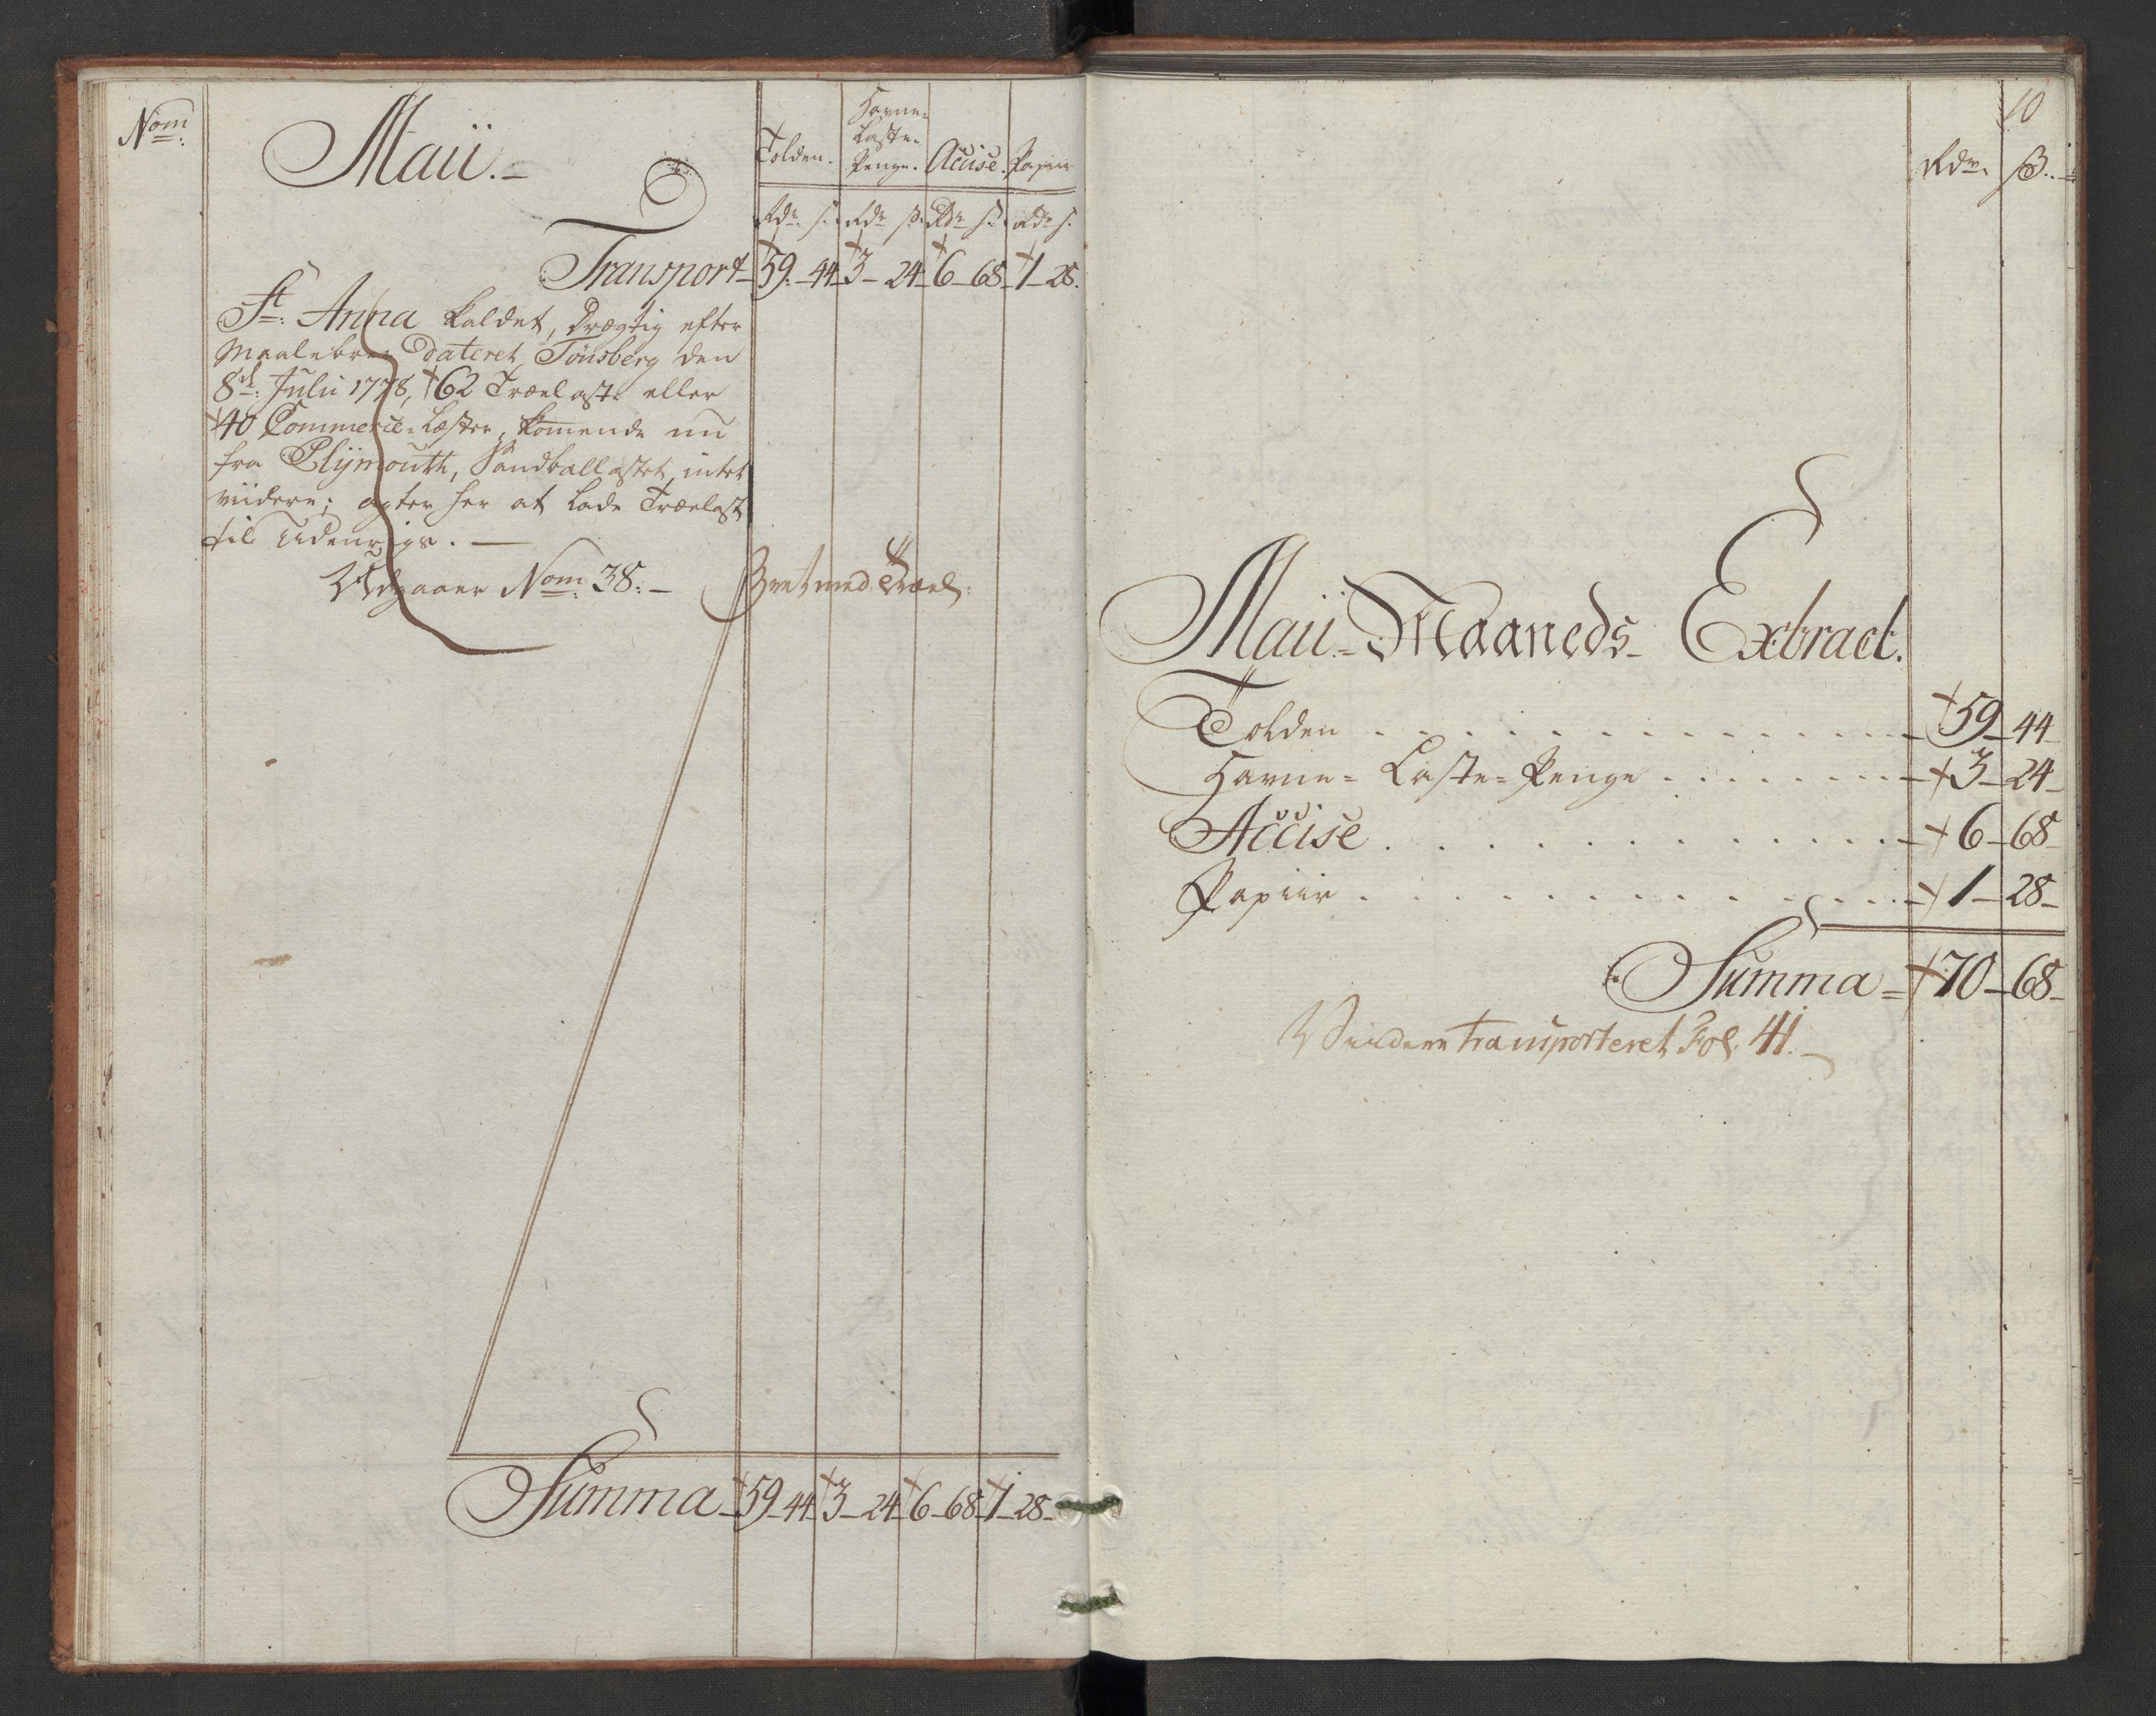 Nom:
Maii.
Tolden.
Havne-
Laste-
Penge.
Accise.
Papiir
Rdr. s. Rdr. s. Rdr. s. Rdr. s.
Transport 59. 44 3 24 6 68 1 28.
St: Anna kaldet, drægtig efter
Maalebrev dateret Tönsberg den
8de: Julii 1778, 62 Trælast eller
40 Commerce-Læster, kommende nu
fra Plijmouth, Sandballastet, intet
viidere; agter her at lade Trælast
til Udenrigs.
Udgaaer Nom: 38.
med Træl:
Summa 59 44 3 24 6 68 1 28
10
Rdr. ß.
Maii-Maaneds-Extract.
Tolden . . . . 59 44
Havne-Laste-Penge . . . . 3 24
Accise . . . . 6 68
Papiir . . . . 1 28
Summa 70 68
Viidere transporteret Fol. 41.